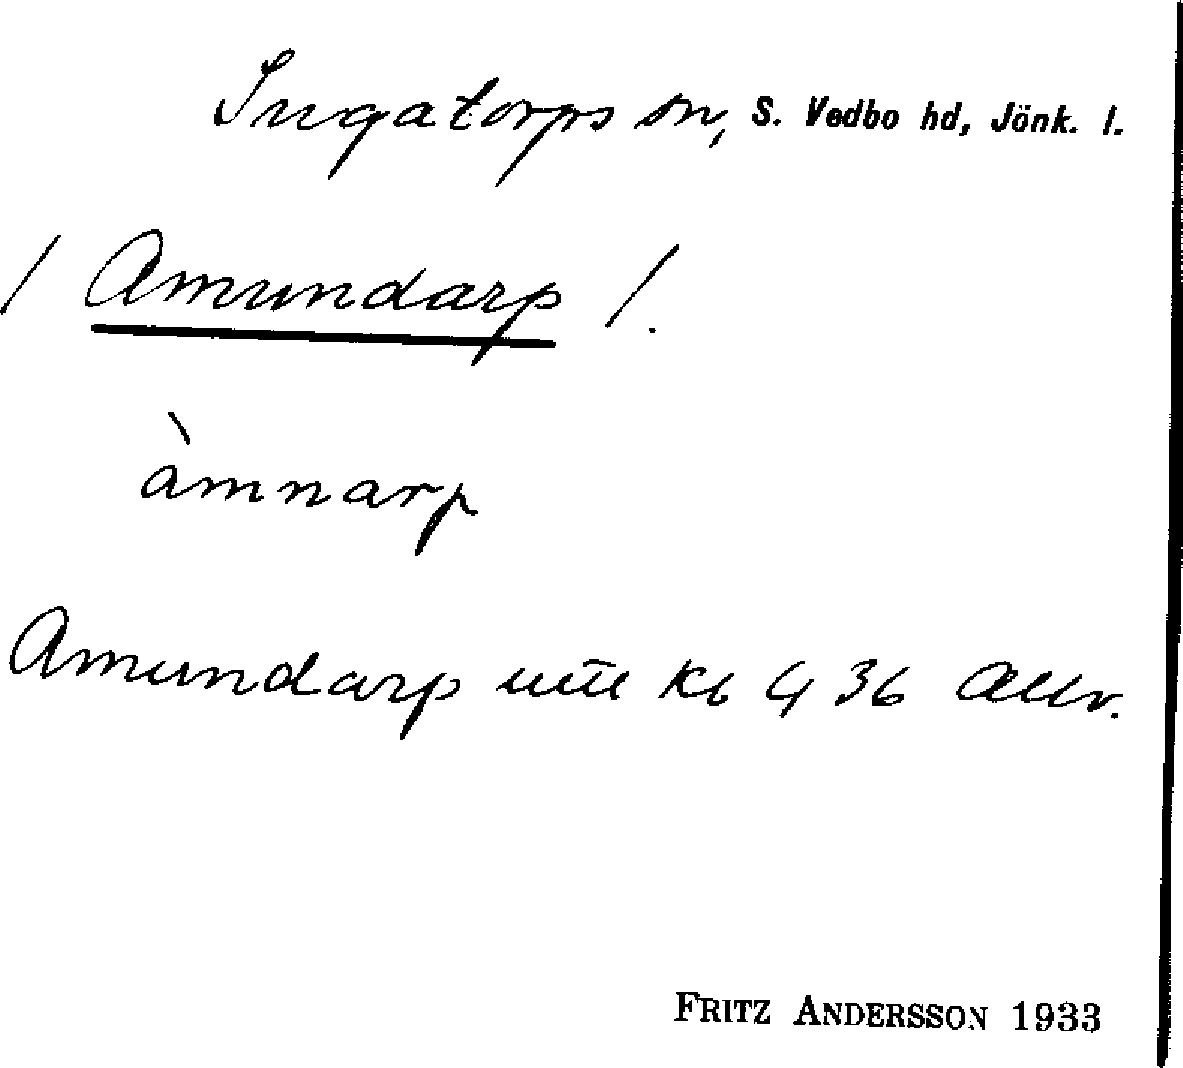 Ingatorps sn, S. Vedbo hd, Jönk. l.
/ Amundarp /.
àmnarp
Amundarp Kb G 36
FRITZ ANDERSSON 1933